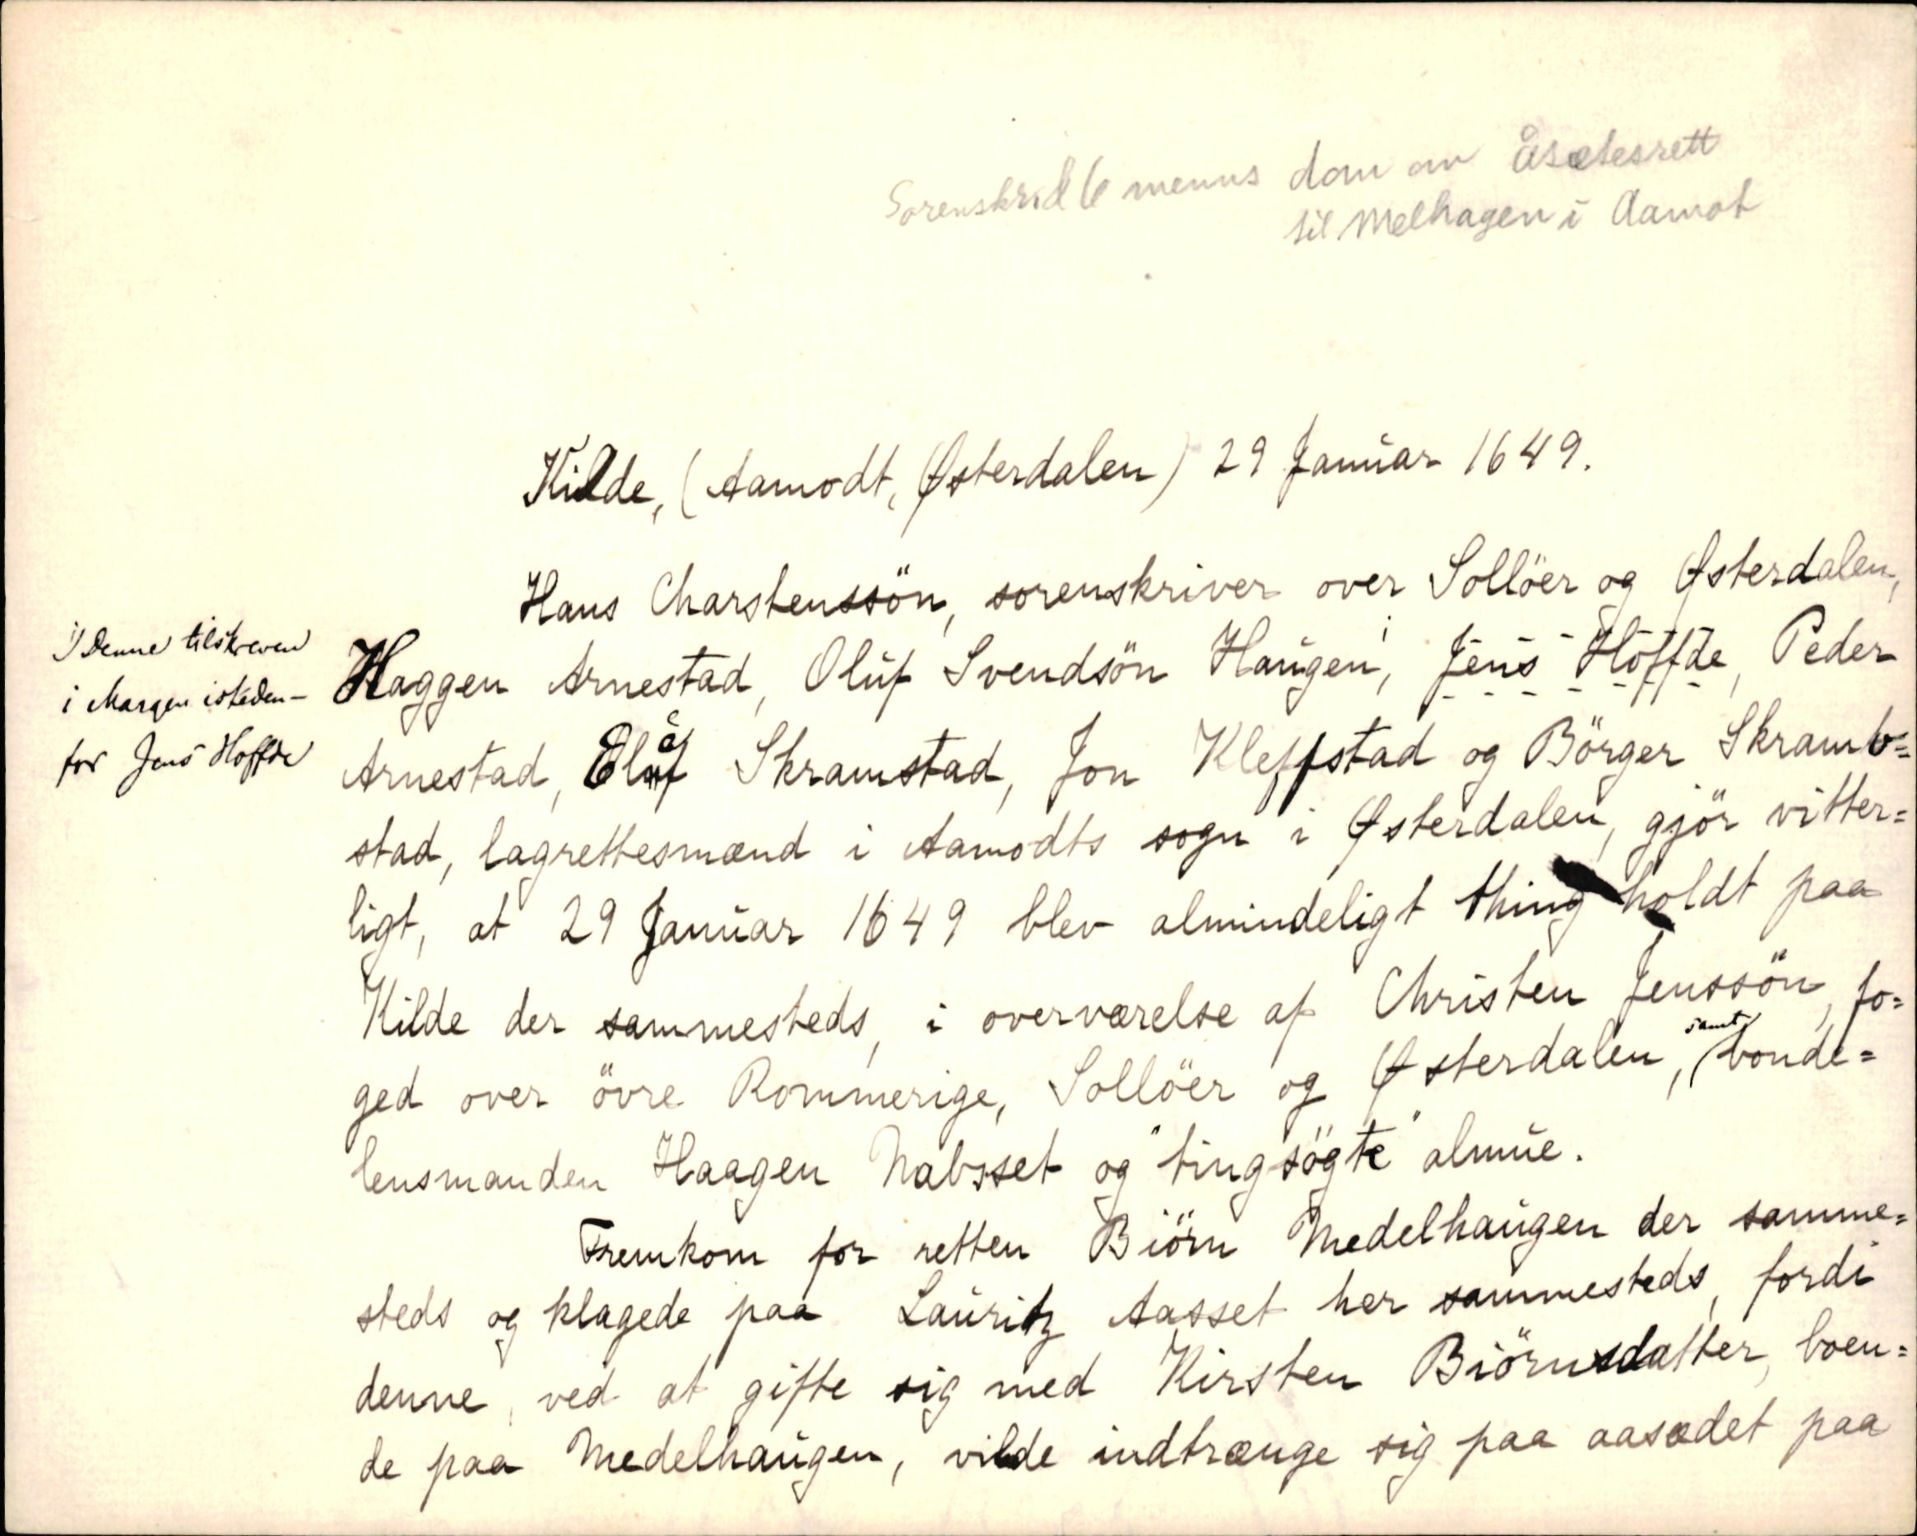 Sorenskr. & 6 menns dom om åsetesrett
til Melhagen i Aamot
Kilde, (Aamodt, Østerdalen) 29 Januar 1649.
Hans Charstenssön, sorenskriver over Sollöer og Østerdalen,
Haggen Arnestad, Oluf Svendsön Haugen¹, Jens Hoffde, Peder
Arnestad, Eluf Skramstad, Jon Kleffstad og Börger Skramb=
stad, lagrettesmænd i Aamodts sogn i Østerdalen, gjör vitter=
ligt, at 29 Januar 1649 blev almindeligt thing holdt paa
Kilde der sammesteds, i overværelse af Christen Jenssön, fo=
ged over övre Rommerige, Sollöer og Østerdalen, samt bonde=
lensmanden Haagen Nabsset og "tingsögte" almue.
Fremkom for retten Biörn Medelhaugen der samme=
steds og klagede paa Lauritz Aasset her sammesteds, fordi
denne, ved at gifte sig med Kirsten Biörnsdatter, boen=
de paa Medelhaugen, vilde indtrænge sig paa aasædet paa
1) Denne tilskreven
i Margen isteden-
for Jens Hoffde